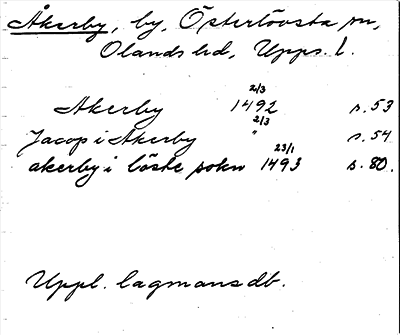 Åkerby, by, Österlövsta sn,
Olands hd, Upps. l.
Akerby 2/3 1492 s. 53
Jacop i Akerby 2/3 " s. 54
akerby i löste sokn 23/1 1493 s. 80.
Uppl. lagmansdb.